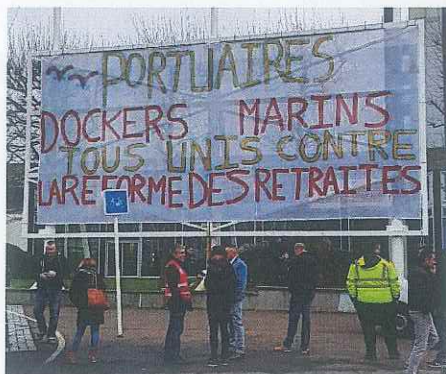 PORTUAIRES
DOCKERS MARINS
TOUS UNIS CONTRE
LA REFORME DES RETRAITES